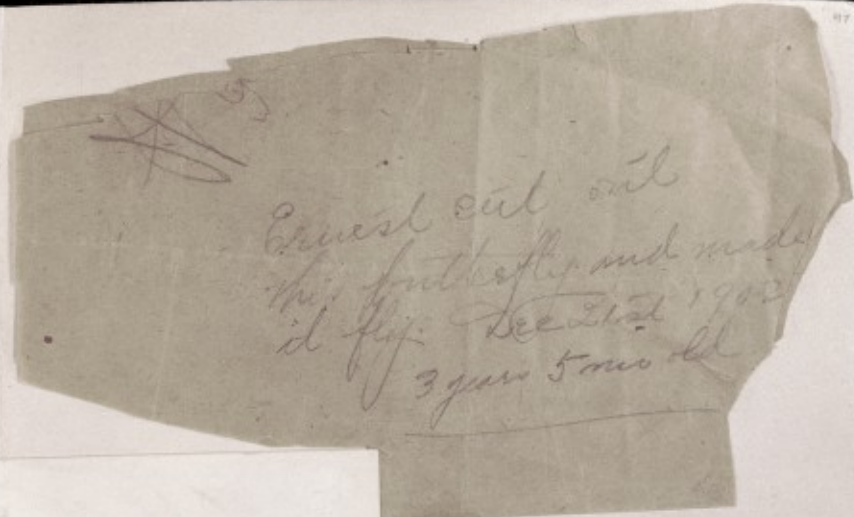 Ernest cut out
this butterfly and made
it fly. Dec 21st 1902
3 years 5 mo old